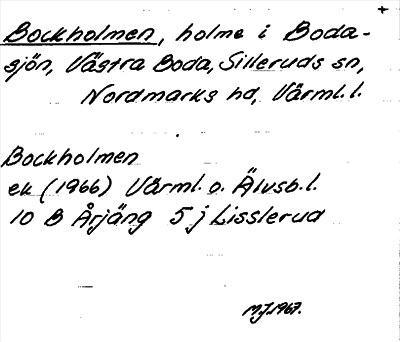 Bockholmen, holme i Boda-
sjön, Västra Boda, Silleruds sn,
Nordmarks hd, Värml. l.
Bockholmen
ek (1966) Värml. o. Älvsb. l.
10 B Årjäng 5 j Lisslerud
M.J. 1967.